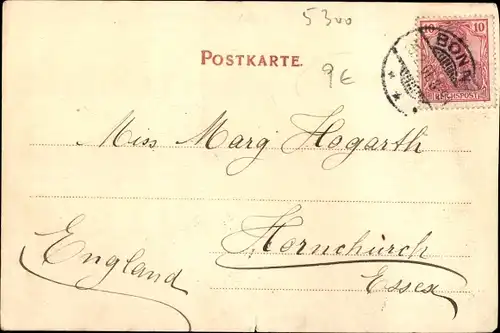 5300
10 10
BONN
REICHSPOST
POSTKARTE.
9€
Miss Marg Hogarth
Hornchurch
England
Essex